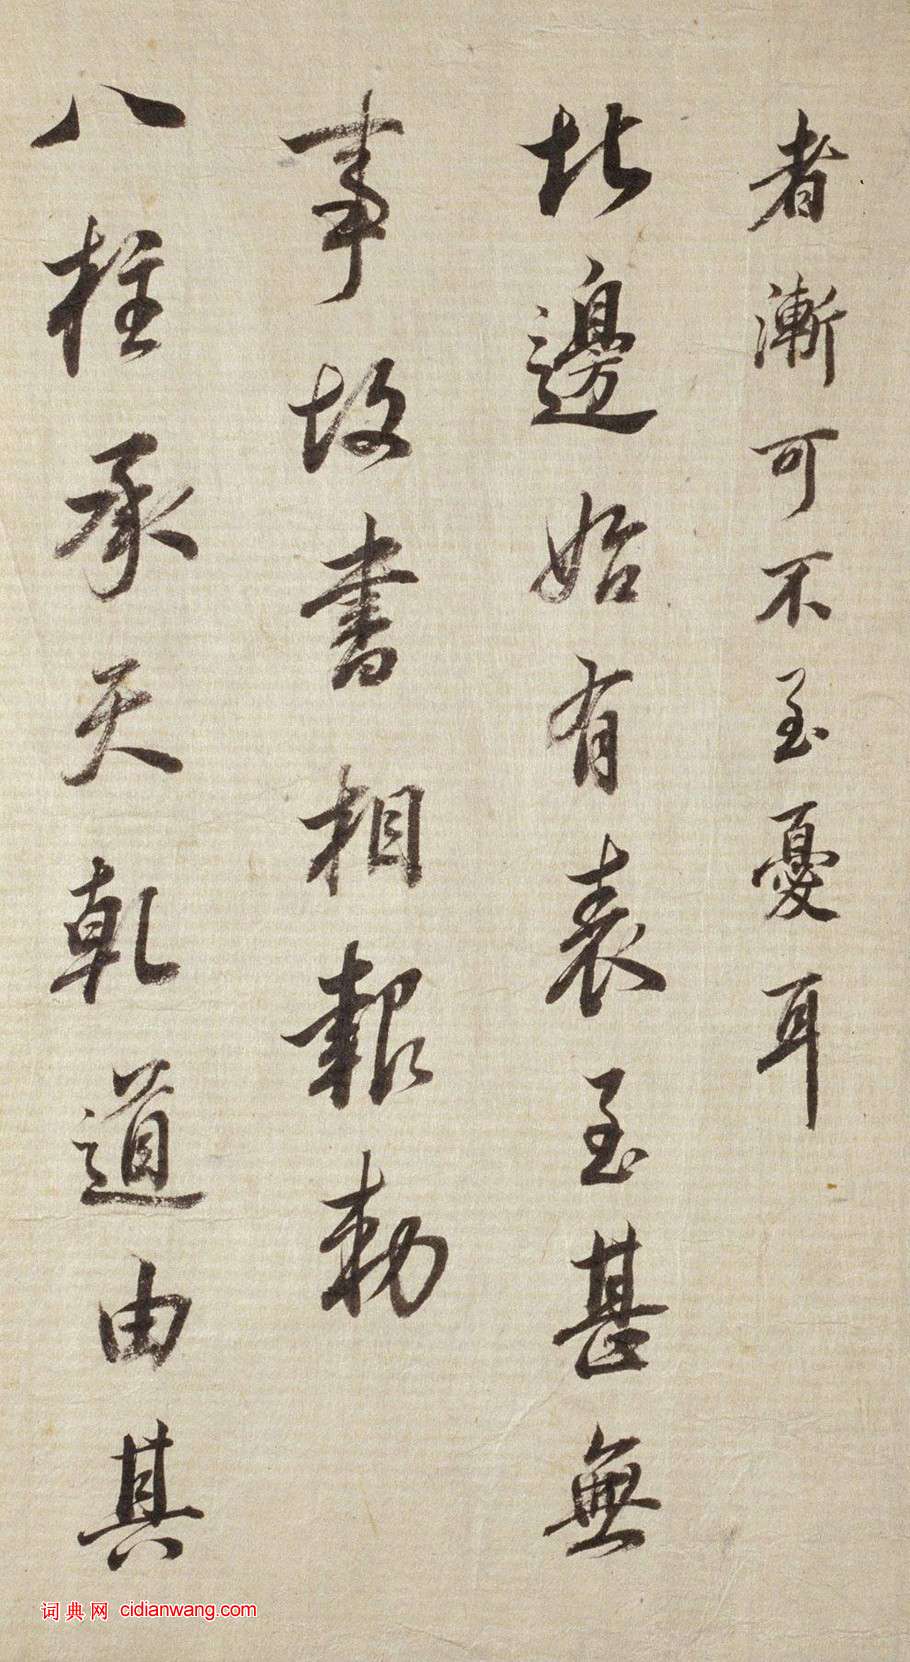 者漸可不至憂耳
北邊始有表至甚無
事故書相報勅
八柱承天乾道由其
词典网 cidianwang.com